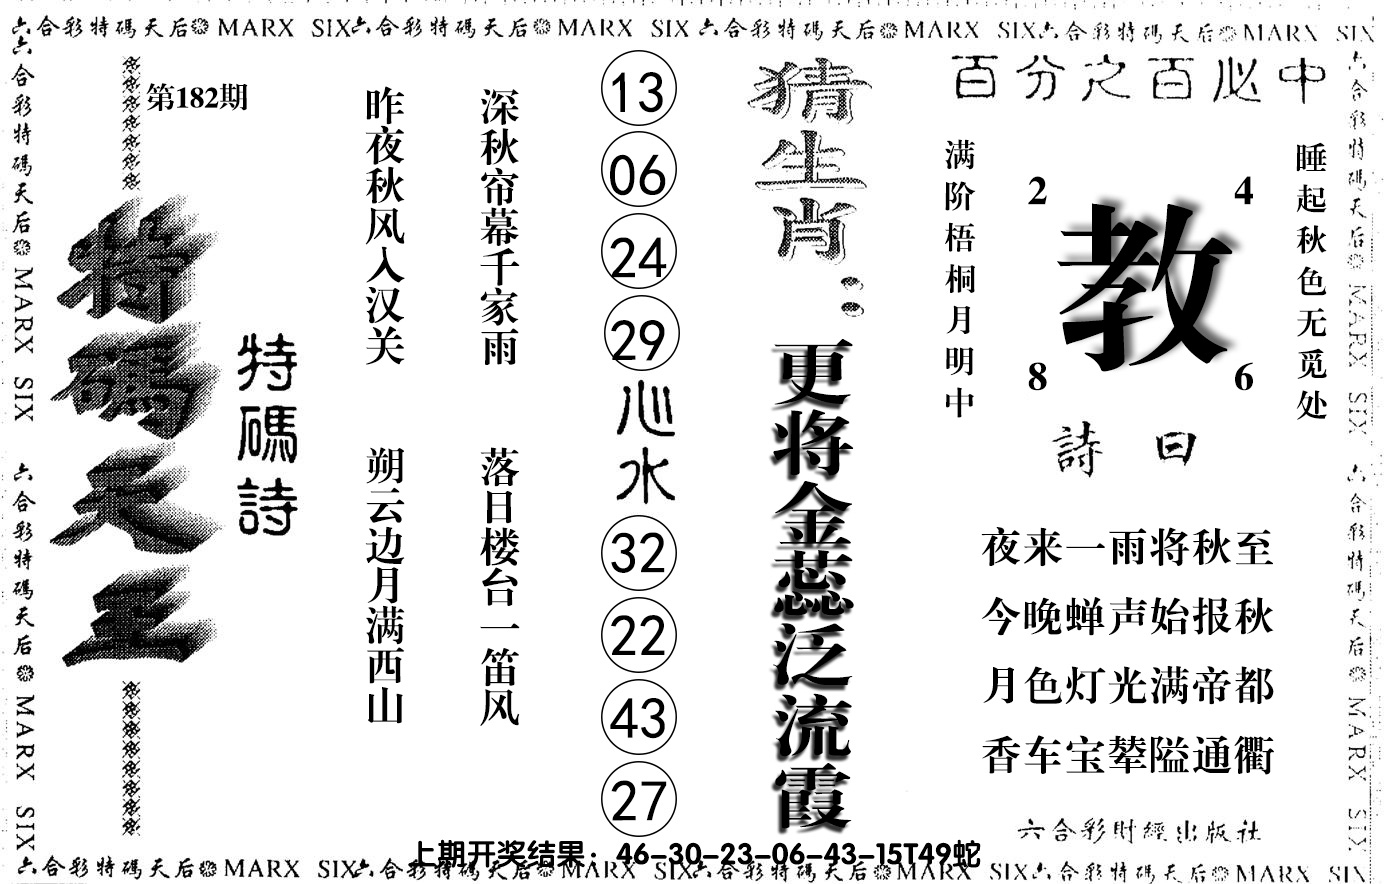 六合彩特碼天后 MARX SIX 六合彩特碼天后 MARX SIX 六合彩特碼天后 MARX SIX 六合彩特碼天后 MARX SIX
六合彩特碼天后 MARX SIX 六合彩特碼天后 MARX SIX
第182期
特碼天王
特碼詩
昨夜秋风入汉关 朔云边月满西山
深秋帘幕千家雨 落日楼台一笛风
13
06
24
29
心水
32
22
43
27
猜生肖：更将金蕊泛流霞
百分之百必中
满阶梧桐月明中
2 4
教
8 6
睡起秋色无觅处
詩曰
夜来一雨将秋至
今晚蝉声始报秋
月色灯光满帝都
香车宝辇隘通衢
六合彩財經出版社
六合彩特碼天后 MARX SIX 六合彩特碼天后 MARX SIX
上期开奖结果：46-30-23-06-43-15T49蛇
六合彩特碼天后 MARX SIX 六合彩特碼天后 MARX SIX 六合彩特碼天后 MARX SIX 六合彩特碼天后 MARX SIX